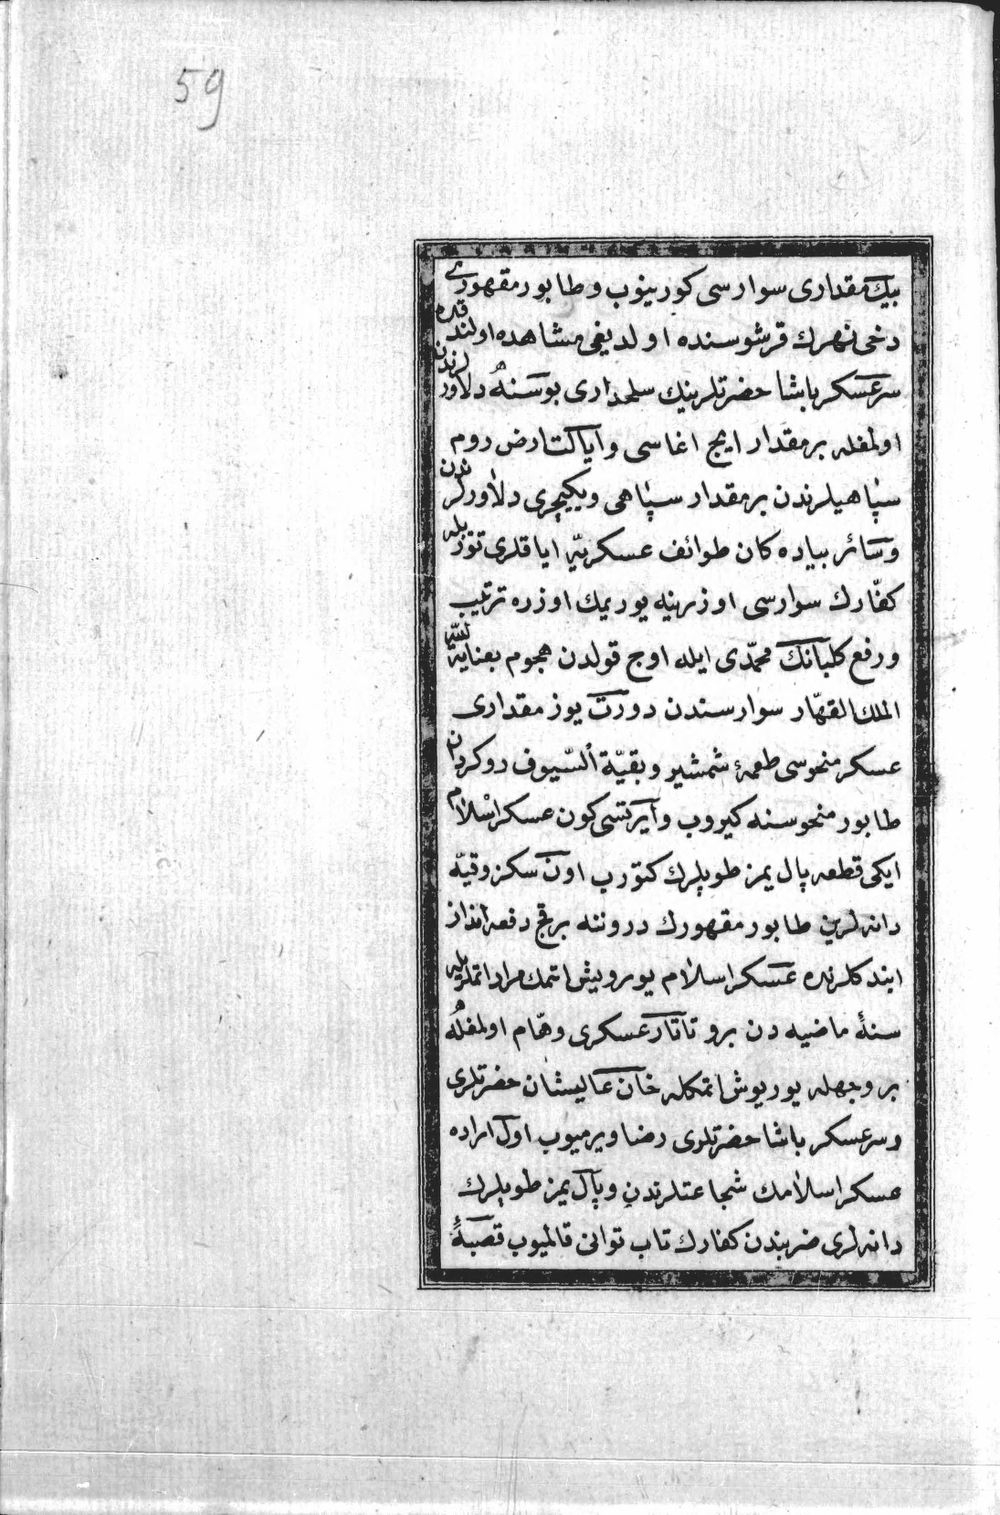 59
بيك مقدارى سوارسى كورينوب و طابور مقهورى
دخى نهرك قرشوسنده اولديغى مشاهده اولندقده
سرعسكر باشا حضرتلرينك سلحدارى بوسنه دلاورلرندن
اولمغله بر مقدار ايچ اغاسى و اياكت ارض روم
سپاهيلرندن بر مقدار سپاهى ويكيچرى دلاورلرندن
وسائر پياده كان طوائف عسكريه اياقلرى توزيله
كفّارك سوارسى اوزرينه يوريمك اوزره ترتيب
ورفع كلبانك محمّدى ايله اوچ قولدن هجوم بعناية اللّه
الملك القهّار سوارسندن دورت يوز مقدارى
عسكر منحوسى طعمۀ شمشير و بقيّة السّيوف روكردان
طابور منحوسنه كيروب و ايرتسى كون عسكر اسلام
ايكى قطعه پال يمز طوپلرك كتورب اون سكز وقيّه
دانه لرين طابور مقهورك دروننه برقچ دفعه انداز
ايتدكلرنده عسكر اسلام يورويش اتمك مراد اتملريله
سنۀ ماضيه دن برو تاتار عسكرى وهّام اولمغله
بر وجهله يوريوش اتمكله خان عاليشان حضرتلرى
وسرعسكر باشا حضرتلرى رضا ويرميوب اول اراده
عسكر اسلامك شجاعتلرندن و پال يمز طوپلرك
دانه لرى ضربندن كفارك تاب توانى قالميوب قصبۀ